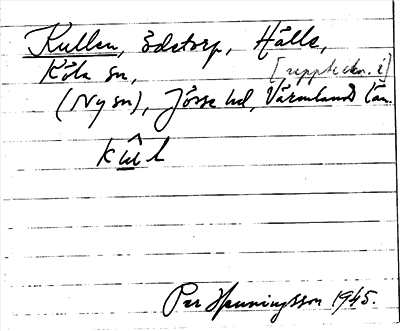 Kullen, Ödetorp, Hälle,
Köla sn, [uppteckn. i]
(Ny sn), Jösse hd, Värmlands län.
kûl
Per Henningsson 1945.